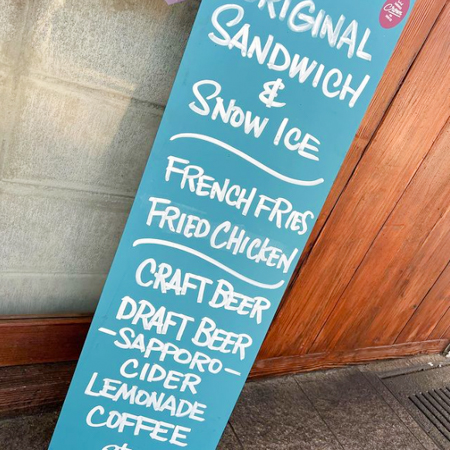 ORIGINAL
SANDWICH
&
SNOW ICE
FRENCH FRIES
FRIED CHICKEN
CRAFT BEER
DRAFT BEER
-SAPPORO-
CIDER
LEMONADE
COFFEE